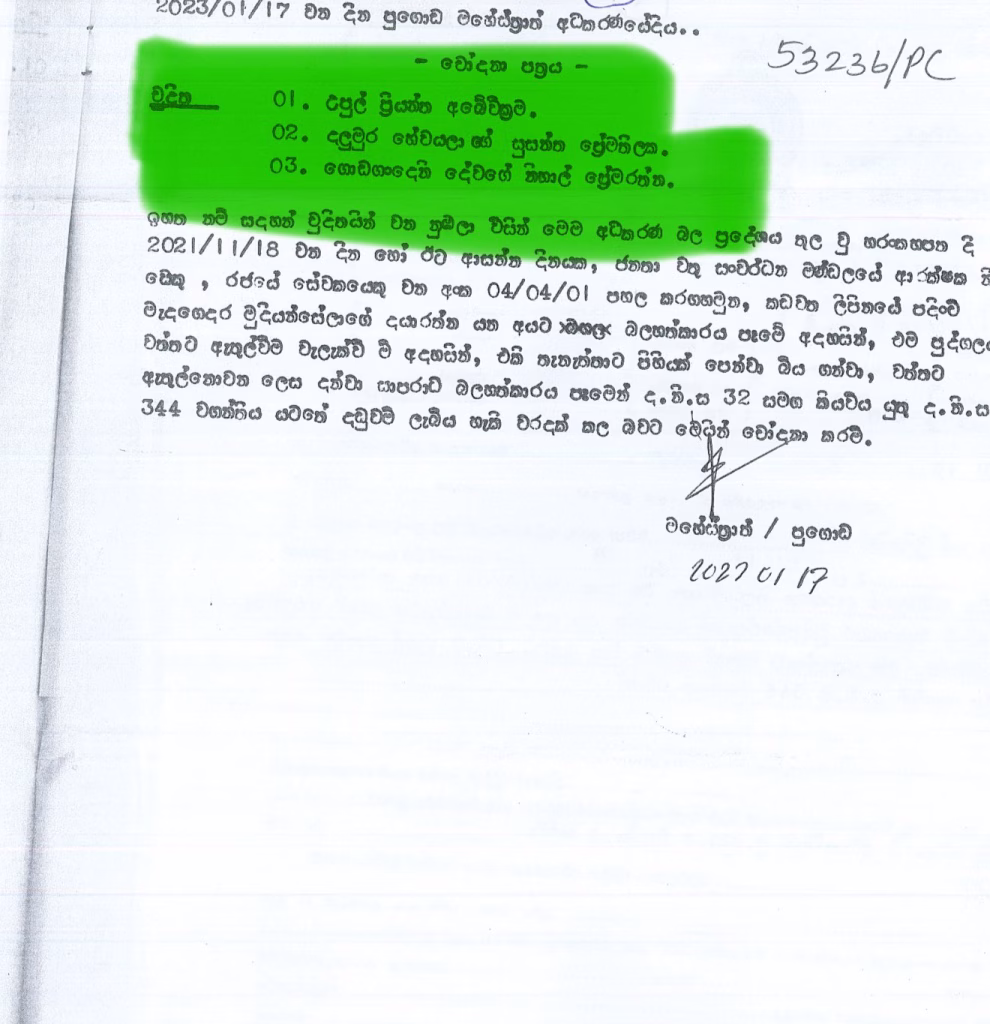 2023/01/17 වන දින පුගොඩ මහේස්ත්‍රාත් අධිකරණයේදීය..
53236/PC
- චෝදනා පත්‍රය -
චුදිත 01. උපුල් ප්‍රියන්ත අබේවික්‍රම.
02. දලුමුර හේවයලා ගේ සුසන්ත ප්‍රේමතිලක.
03. ගොඩගංදෙනි දේවගේ නිහාල් ප්‍රේමරත්න.
ඉහත නම් සදහන් චුදිතයින් වන නුඹලා විසින් මෙම අධිකරණ බල ප්‍රදේශය තුල වු හරංකහපන දි
2021/11/18 වන දින හෝ ඊට ආසන්න දිනයක, ජනතා වතු සංවර්ධන මණ්ඩලයේ ආරක්ෂක
යෙකු, රජයේ සේවකයෙකු වන අංක 04/04/01 පහල කරගහමුන, කඩවත ලිපිනයේ පදිංචි
මැදගෙදර මුදියන්සේලාගේ දයාරත්න යන අයට බලහත්කාරය පෑමේ අදහසින්, එම පුද්ගලය
වත්තට ඇතුල්වීම වැලැක්වී මි අදහසින්, එකි තැනැත්තාට පිහියක් පෙන්වා බිය ගන්වා, වත්තට
ඇතුල්නොවන ලෙස දන්වා සාපරාධි බලහත්කාරය පෑමෙන් ද.නි.ස 32 සමග කියවිය යුතු ද.නි.ස
344 වගන්තිය යටතේ දඩුවම් ලැබිය හැකි වරදක් කල බවට මෙයින් චෝදනා කරමි.
මහේස්ත්‍රාත් / පුගොඩ
2023 01 17